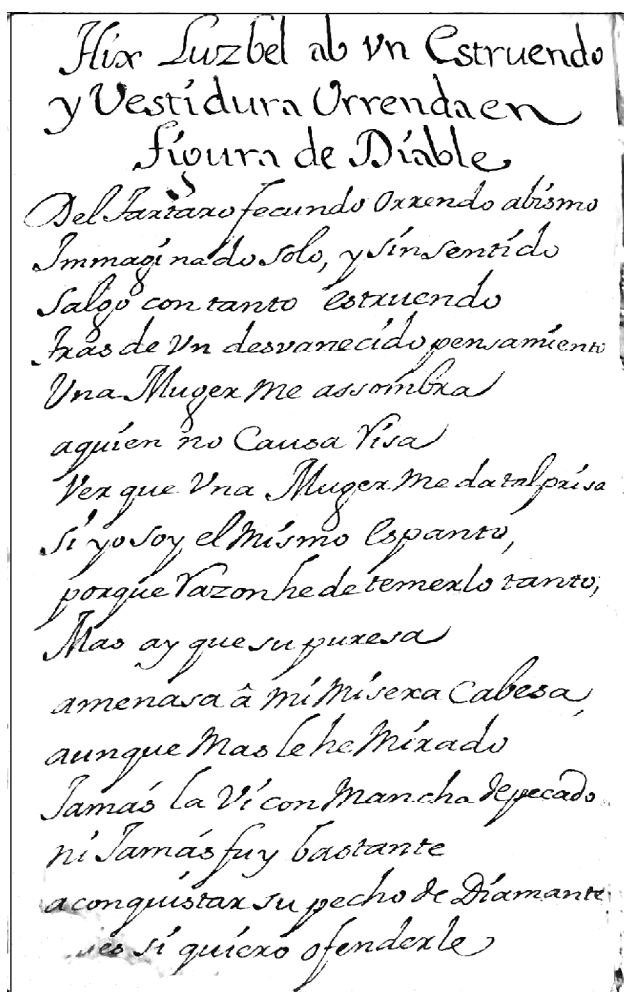 Hix Luzbel ab vn Estruendo
y Vestidura Orrenda en
figura de Diable
Del Tartaro fecundo orrendo abismo
Immaginado solo, y sin sentido
salgo con tanto estruendo
tras de vn desvanecido pensamiento
Una Muger me assombra
aquien no Causa Risa
Ver que Una Muger me da tal prisa
si yo soy el mismo Espanto,
porque Razon he de temerlo tanto,
Mas ay que su puresa
amenasa â mi Misera Cabesa,
aunque Mas le he Mirado
Jamás la Vi con Mancha de pecado
ni Jamás fuy bastante
a conquistar su pecho de Diamante
si quiero ofenderle